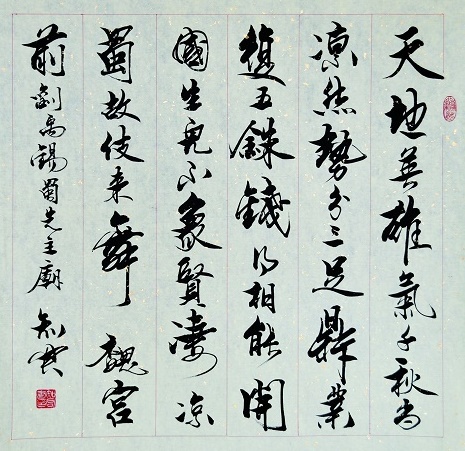 天地英雄氣千秋尚
凛然勢分三足鼎業
復五銖錢得相能開
國生兒不象賢凄凉
蜀故伎来舞魏宮
前劉禹錫蜀先主廟